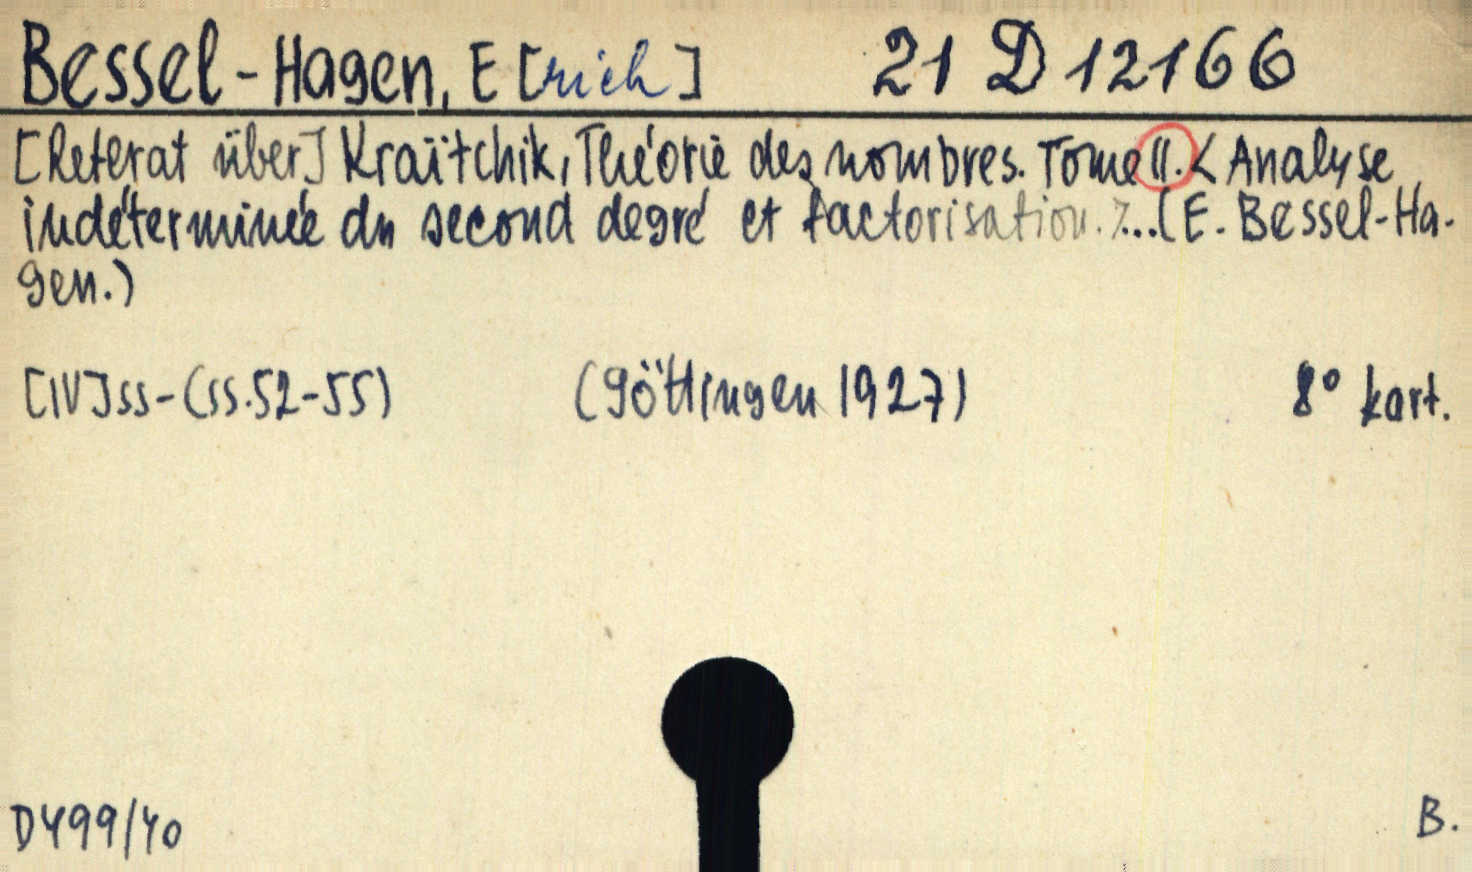 Bessel-Hagen, E[rich] 21 D 12166
[Referat über] Kraïtchik, Théorie des nombres. Tome II. < Analyse
indéterminée du second degré et factorisation. > ... (E. Bessel-Ha-
gen.)
[IV] SS - (SS. 52-55) (Göttingen 1927) 8° kart.
D499/40 B.